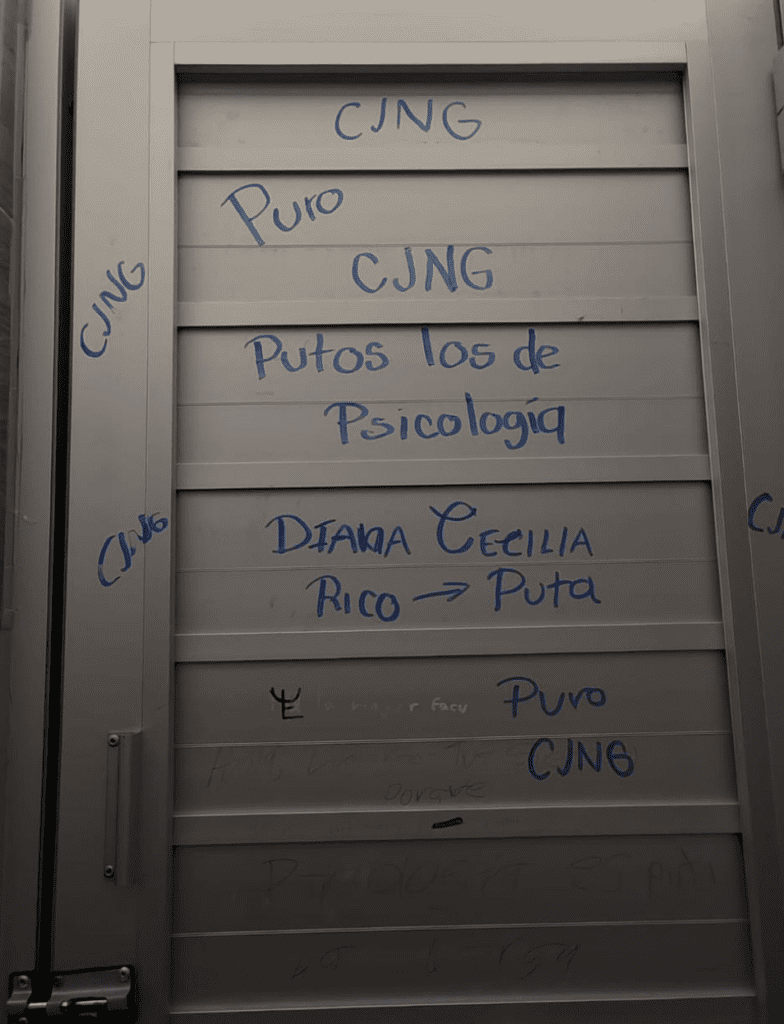 CJNG
Puro
CJNG
CJNG
Putos los de
Psicología
CJNG
DIANA CECILIA
RICO → PUTA
la mejor Facu
Puro
CJNG
porque